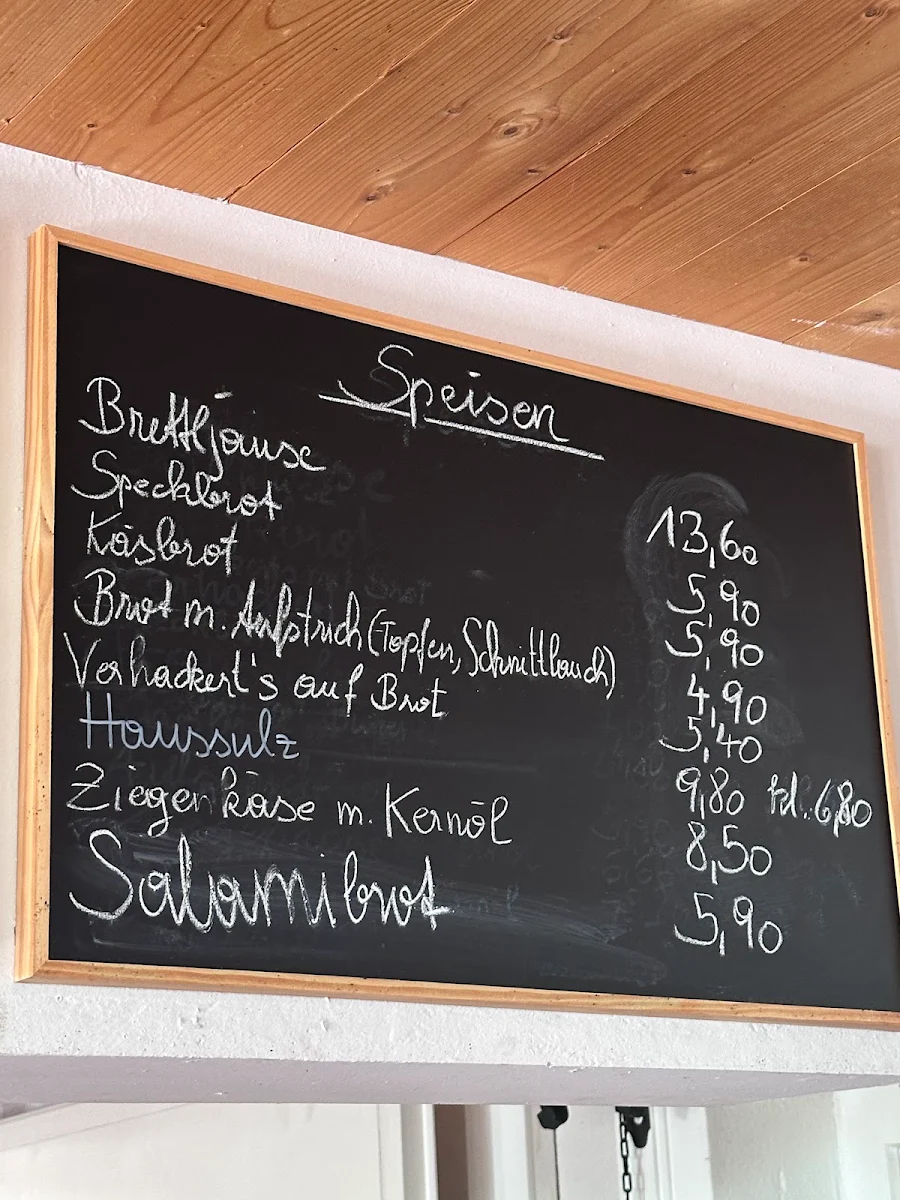 Speisen
Brettljause 13,60
Speckbrot 5,90
Käsbrot 5,90
Brot m. Aufstrich (Topfen, Schnittlauch) 4,90
Verhackert's auf Brot 5,40
Haussulz 9,80 kl. 6,80
Ziegenkäse m. Kernöl 8,50
Salamibrot 5,90